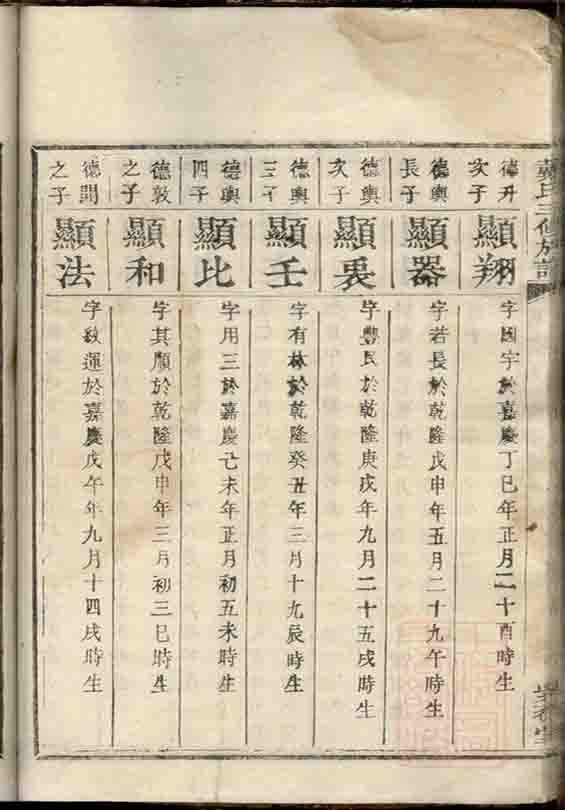 氏三修族譜
德升次子
顯翔
字國宇於嘉慶丁巳年正月二十酉時生
德輿長子
顯器
字若長於乾隆戊申年五月二十九午時生
德輿次子
顯
字豐民於乾隆庚戌年九月二十五戌時生
德輿三子
顯壬
字有林於乾隆癸丑年三月十九辰時生
德輿四子
顯比
字用三於嘉慶己未年正月初五未時生
德敦之子
顯和
字其順於乾隆戊申年三月初三巳時生
德開之子
顯法
字啟運於嘉慶戊午年九月十四戌時生